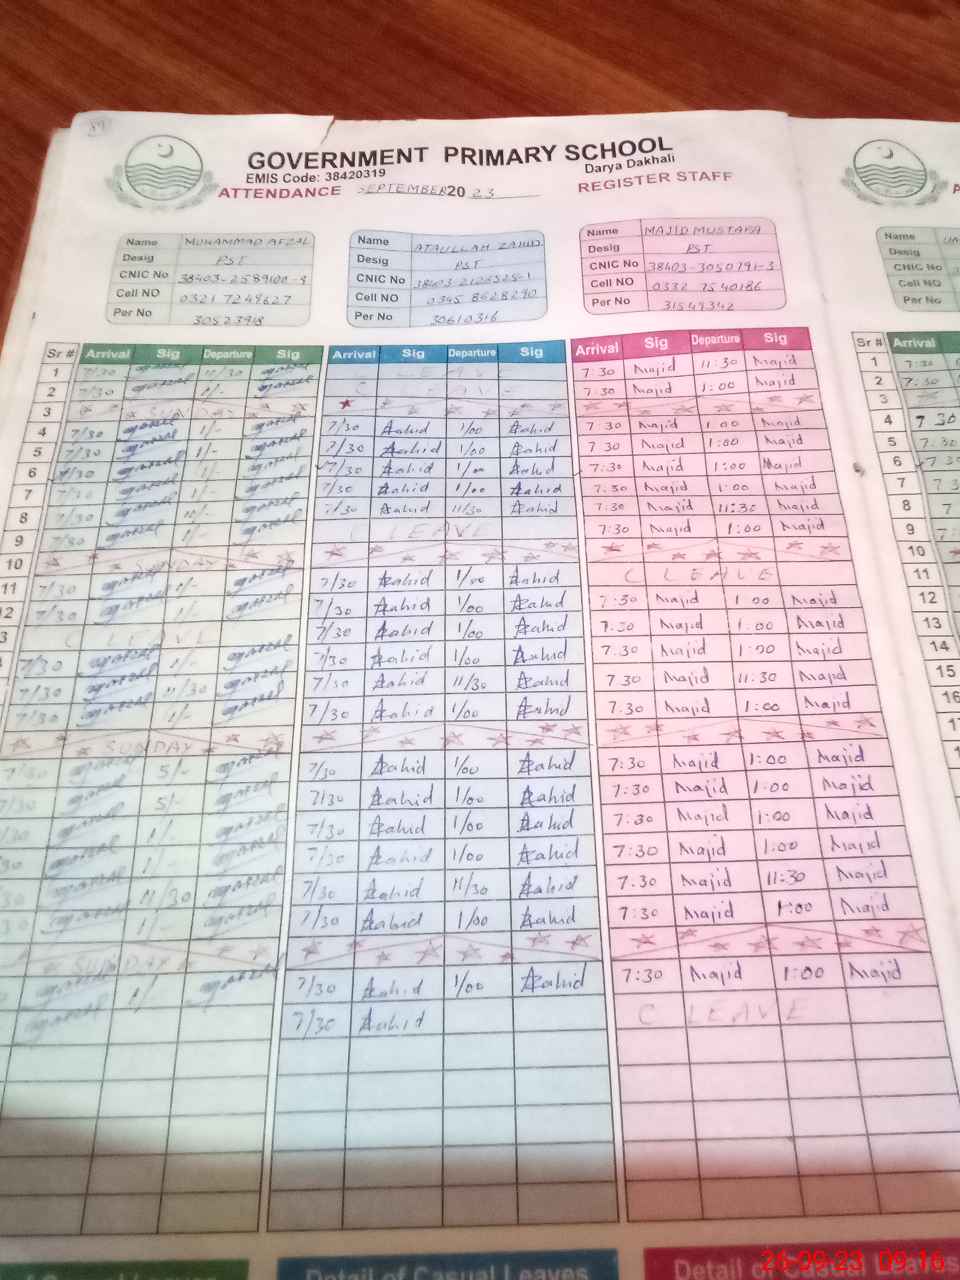 89
GOVERNMENT PRIMARY SCHOOL
EMIS Code: 38420319
Darya Dakhali
ATTENDANCE SEPTEMBER 2023 REGISTER STAFF
Name MUHAMMAD AFZAL
Desig PST
CNIC No
Cell NO 0321 7249627
Per No 30523918
Name ATAULLAH ZAHID
Desig PST
CNIC No
Cell NO 0345 8628290
Per No 30610316
Name MAJID MUSTAFA
Desig PST
CNIC No 38403-3050791-3
Cell NO 0332 7540186
Per No 31549342
Name
Desig
CNIC No
Cell NO
Per No
Sr # Arrival Sig Departure Sig Arrival Sig Departure Sig Arrival Sig Departure Sig Sr # Arrival
1 7/30 11/30 LEAVE 7:30 Majid 11:30 Majid 1 7:30
2 7/30 1/- C LEAVE 7:30 Majid 1:00 Majid 2 7:30
3 SUNDAY 3
4 7/30 1/- 7/30 Zahid 1/00 Zahid 7:30 Majid 1:00 Majid 4 7:30
5 7/30 1/- 7/30 Zahid 1/00 Zahid 7:30 Majid 1:00 Majid 5 7:30
6 7/30 1/- 7/30 Zahid 1/00 Zahid 7:30 Majid 1:00 Majid 6 7:30
7 7/30 1/- 7/30 Zahid 1/00 Zahid 7:30 Majid 1:00 Majid 7
8 7/30 11/- 7/30 Zahid 11/30 Zahid 7:30 Majid 11:30 Majid 8
9 7/30 1/- C LEAVE 7:30 Majid 1:00 Majid 9
10 SUNDAY 10
11 7/30 1/- 7/30 Zahid 1/00 Zahid C LEAVE 11
12 7/30 1/- 7/30 Zahid 1/00 Zahid 7:30 Majid 1:00 Majid 12
3 C LEAVE 7/30 Zahid 1/00 Zahid 7:30 Majid 1:00 Majid 13
7/30 1/- 7/30 Zahid 1/00 Zahid 7:30 Majid 1:00 Majid 14
7/30 11/30 7/30 Zahid 11/30 Zahid 7:30 Majid 11:30 Majid 15
7/30 1/- 7/30 Zahid 1/00 Zahid 7:30 Majid 1:00 Majid 16
SUNDAY
7/30 5/- 7/30 Zahid 1/00 Zahid 7:30 Majid 1:00 Majid
7/30 5/- 7/30 Zahid 1/00 Zahid 7:30 Majid 1:00 Majid
7/30 1/- 7/30 Zahid 1/00 Zahid 7:30 Majid 1:00 Majid
30 1/- 7/30 Zahid 1/00 Zahid 7:30 Majid 1:00 Majid
30 11/30 7/30 Zahid 11/30 Zahid 7:30 Majid 11:30 Majid
30 1/- 7/30 Zahid 1/00 Zahid 7:30 Majid 1:00 Majid
SUNDAY
1/- 7/30 Zahid 1/00 Zahid 7:30 Majid 1:00 Majid
7/30 Zahid C LEAVE
Detail of Casual Leaves
Detail of Casual Leaves
26-09-23 09:16